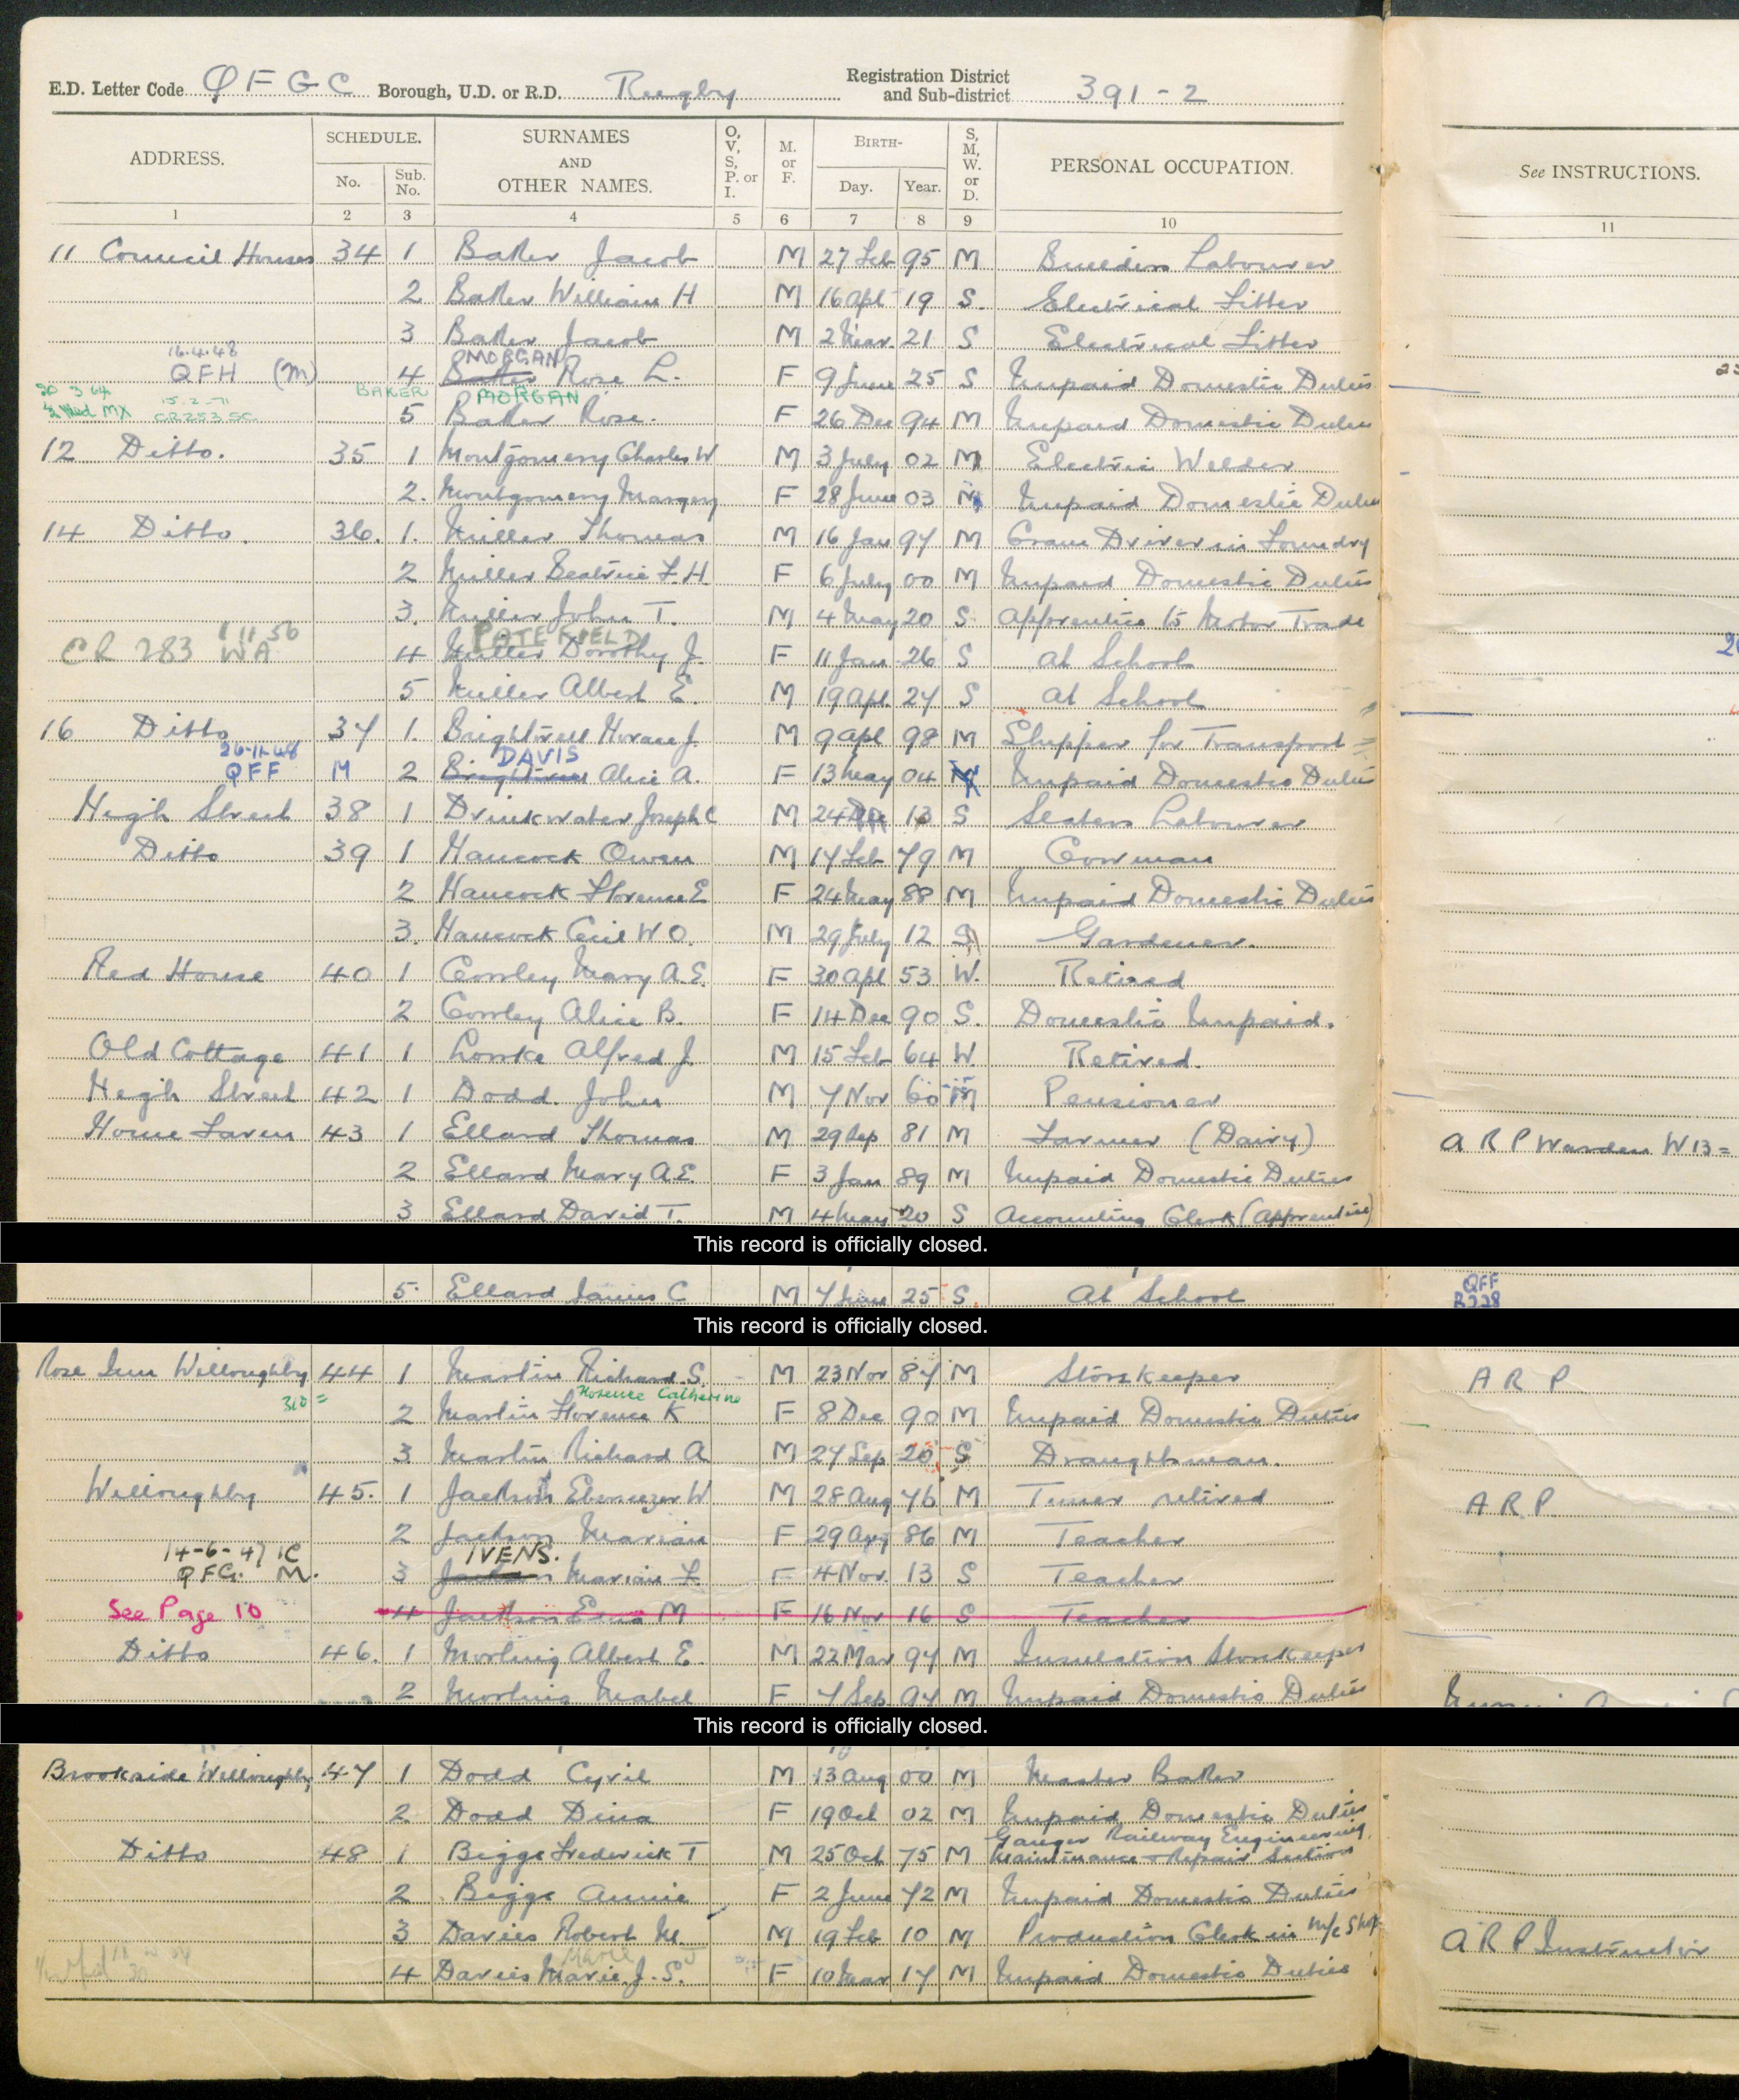 E.D. Letter Code QFGC Borough, U.D. or R.D. Rugby Registration District and Sub-district 391-2
ADDRESS. SCHEDULE. No. Sub. No. SURNAMES AND OTHER NAMES. O, V, S, P. or I. M. or F. BIRTH- Day. Year. S, M, W. or D. PERSONAL OCCUPATION. See INSTRUCTIONS.
1 2 3 4 5 6 7 8 9 10 11
11 Council Houses 34 1 Baker Jacob M 27 Feb 95 M Builders Labourer
2 Baker William H M 16 Apl 19 S. Electrical Fitter
3 Baker Jacob M 2 Mar. 21 S Electrical Fitter
16.4.48 MORGAN
QFH (M) 4 Baker Rose L. F 9 June 25 S Unpaid Domestic Duties
20 3 64 MX 15-2-71 CR253 SC. BAKER MORGAN
5 Baker Rose. F 26 Dec 94 M Unpaid Domestic Duties
12 Ditto. 35 1 Montgomery Charles W M 3 July 02 M Electric Welder
2. Montgomery Margery F 28 June 03 M Unpaid Domestic Duties
14 Ditto. 36. 1. Miller Thomas M 16 Jan 97 M Crane Driver in Foundry
2 Miller Beatrice F. H. F 6 July 00 M Unpaid Domestic Duties
3. Miller John T. M 4 May 20 S Apprentice to Motor Trade
CR 283 1 11 56 WA PATEFIELD
4 Miller Dorothy J. F 11 Jan 26 S At School
5 Miller Albert E. M 19 Apl. 27 S At School
16 Ditto 37 1. Brightwell Horace J. M 9 Apl 98 M Shipper for Transport
26-11-48 DAVIS
QFF M 2 Brightwell Alice A. F 13 May 04 Unpaid Domestic Duties
High Street 38 1 Drinkwater Joseph C M 24 Dec 13 S Labourer
Ditto 39 1 Hancock Owen M 17 Feb 79 M Cowman
2 Hancock Florence E F 24 May 88 M Unpaid Domestic Duties
3. Hancock Cecil W O. M 29 July 12 S Gardener.
Red House 40 1 Cowley Mary A. E. F 30 Apl 53 W. Retired
2 Cowley Alice B. F 14 Dec 90 S. Domestic Unpaid.
Old Cottage 41 1 Alfred J. M 15 Feb 64 W. Retired.
High Street 42 1 Dodd John M 7 Nov 60 M Pensioner
Home Farm 43 1 Ellard Thomas M 29 Sep 81 M Farmer (Dairy) A R P Warden W13=
2 Ellard Mary A. E. F 3 Jan 89 M Unpaid Domestic Duties
3 Ellard David T. M 4 May 20 S Accounting Clerk (Apprentice)
This record is officially closed.
5. Ellard James C M 7 June 25 S At School QFF B228
This record is officially closed.
Rose Inn Willoughby 44 1 Martin Richard. S. M 23 Nov 87 M Storekeeper A R P
310= Florence Catherine
2 Martin Florence K F 8 Dec 90 M Unpaid Domestic Duties
3 Martin Richard A M 27 Sep 20 S Draughtsman.
Willoughby 45. 1 Jackson Ebenezer W M 28 Aug 76 M Tuner retired A R P.
2 Jackson Marian F 29 Aug 86 M Teacher
14-6-47 IC IVENS.
QFG. M. 3 Jackson Marian F. F 4 Nov. 13 S Teacher
See Page 10 4 Jackson M F 16 Nov 16 S Teacher
Ditto 46. 1 Morling Albert E. M 22 Mar 97 M Insulation Storekeeper
2 Morling Mabel F 7 Sep 97 M Unpaid Domestic Duties
This record is officially closed.
Brookside Willoughby 47 1 Dodd Cyril M 13 Aug 00 M Master Baker
2. Dodd Dina F 19 Oct 02 M Unpaid Domestic Duties
Ganger Railway Engineering
Ditto 48 1 Biggs Frederick T M 25 Oct 75 M Maintenance & Repair Section
2 Biggs Annie F 2 June 72 M Unpaid Domestic Duties
3 Davies Robert M. M 19 Feb 10 M Production Clerk in M/c Shop A R P Instructor
4 Davies Marie J. S. F 10 Mar 17 M Unpaid Domestic Duties